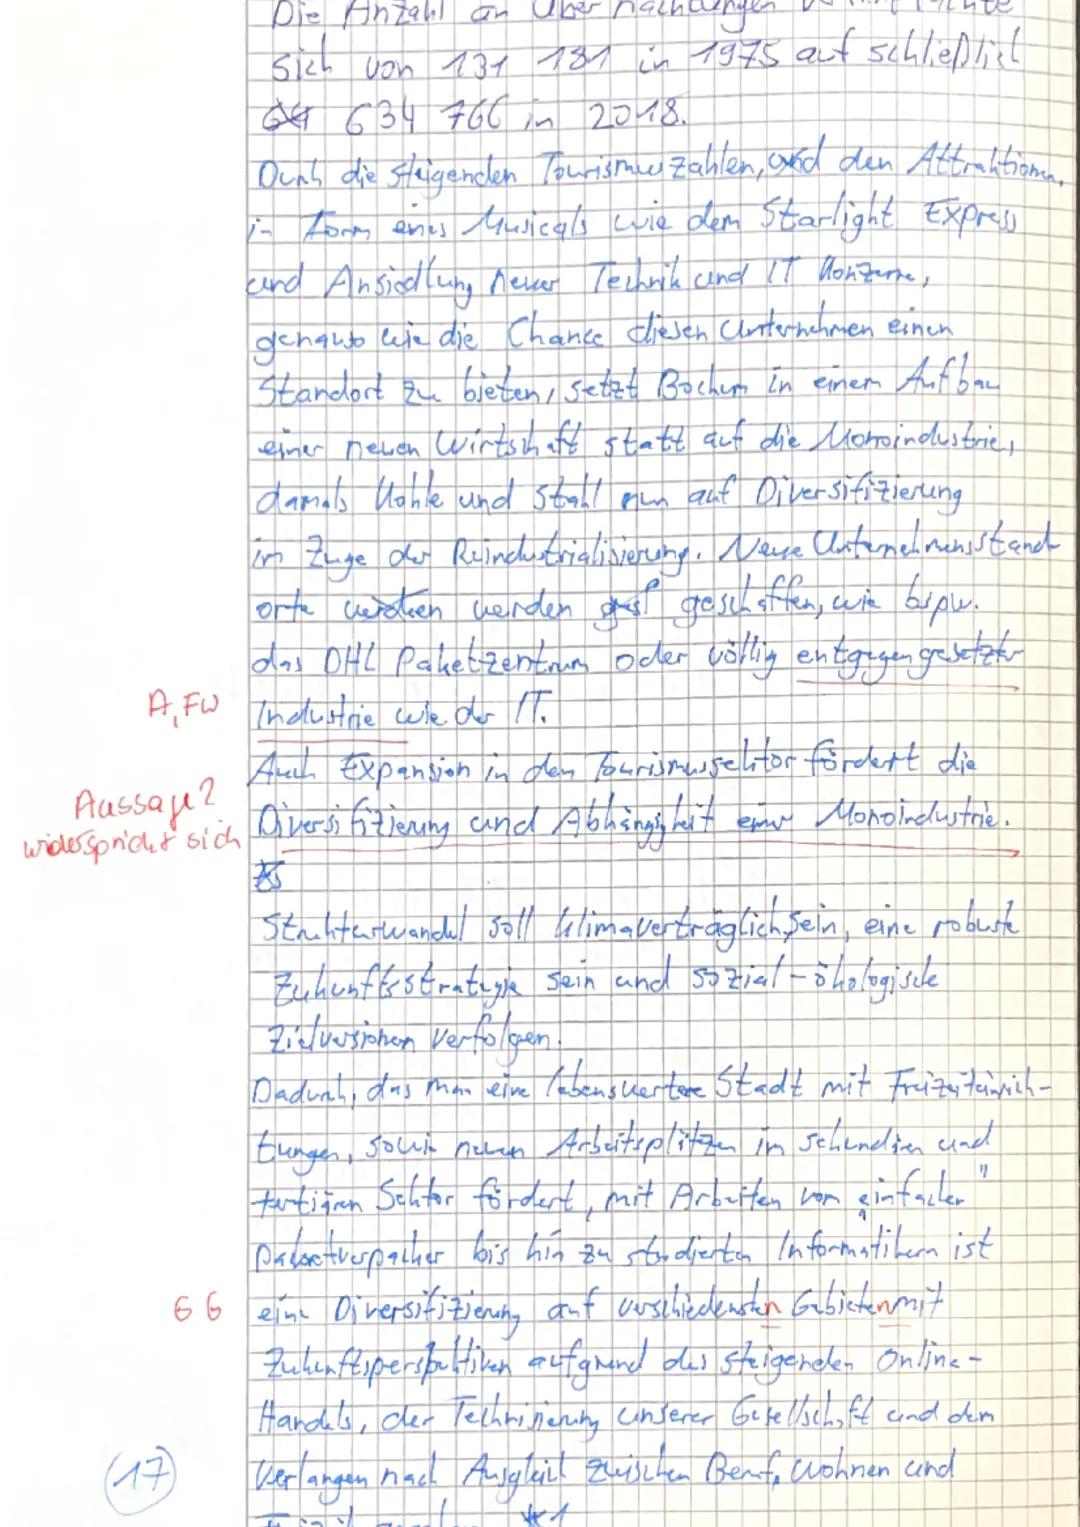 Die Anzahl an Übernachtungen
sich von 131 181 in 1975 auf schließlich
634 766 in 2018.
Durch die steigenden Tourismuszahlen, und den Attraktionen,
in Form eines Musicals wie dem Starlight Express
und Ansiedlung neuer Technik und IT Konzerne,
genauso wie die Chance diesen Unternehmen einen
Standort zu bieten, setzt Bochum in einem Aufbau
einer neuen Wirtschaft statt auf die Monoindustrie,
damals Kohle und Stahl nun auf Diversifizierung
im Zuge der Reindustrialisierung. Neue Unternehmensstand-
orte werden werden geschaffen, wie bspw.
das DHL Paketzentrum oder völlig entgegengesetzte
A, FW Industrie wie der IT.
Auch Expansion in den Tourismussektor fördert die
Aussage?
widerspricht sich
Diversifizierung und Abhängigkeit einer Monoindustrie.
Es
Strukturwandel soll klimaverträglich sein, eine robuste
Zukunftsstrategie sein und sozial-ökologische
Zielversionen verfolgen.
Dadurch, das man eine lebenswertere Stadt mit Freizeiteinrich-
tungen, sowie neuen Arbeitsplätzen im sekundären und
tertiären Sektor fördert, mit Arbeiten vom „einfachen"
Paketverpacker bis hin zu studierten Informatikern ist
G G eine Diversifizierung auf verschiedensten Gebieten mit
Zukunftsperspektiven aufgrund des steigenden Online-
Handels, der Technisierung unserer Gesellschaft und dem
(17) Verlangen nach Ausgleich zwischen Beruf, Wohnen und
*1